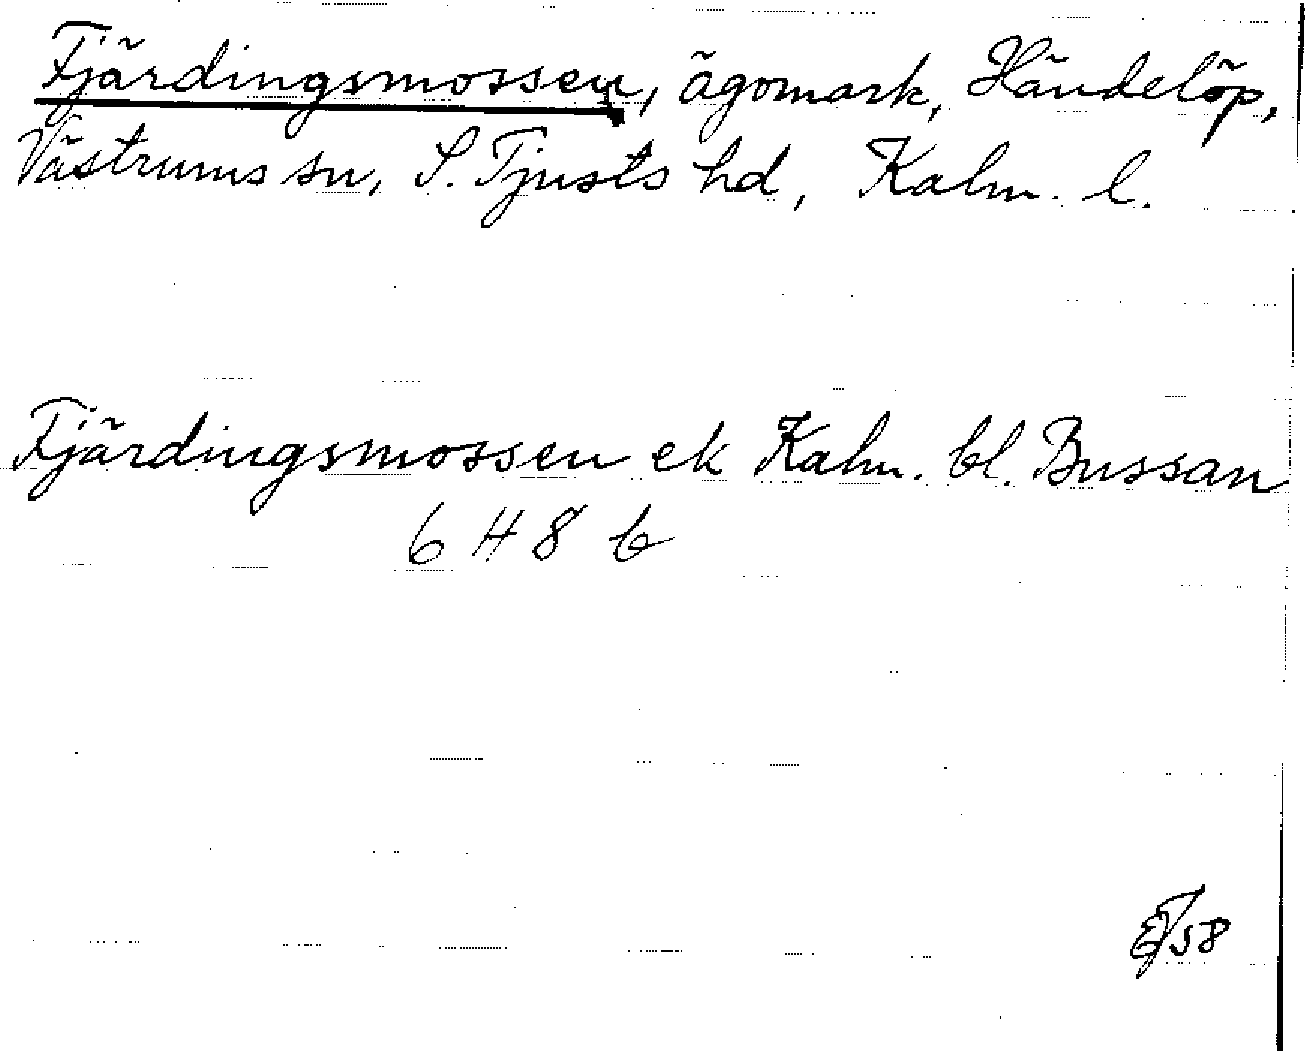 Fjärdingsmossen, ägomark, Händelöp,
Västrums sn, S. Tjusts hd, Kalm. l.
Fjärdingsmossen ek Kalm. bl. Bussan
6 H 8 b
58